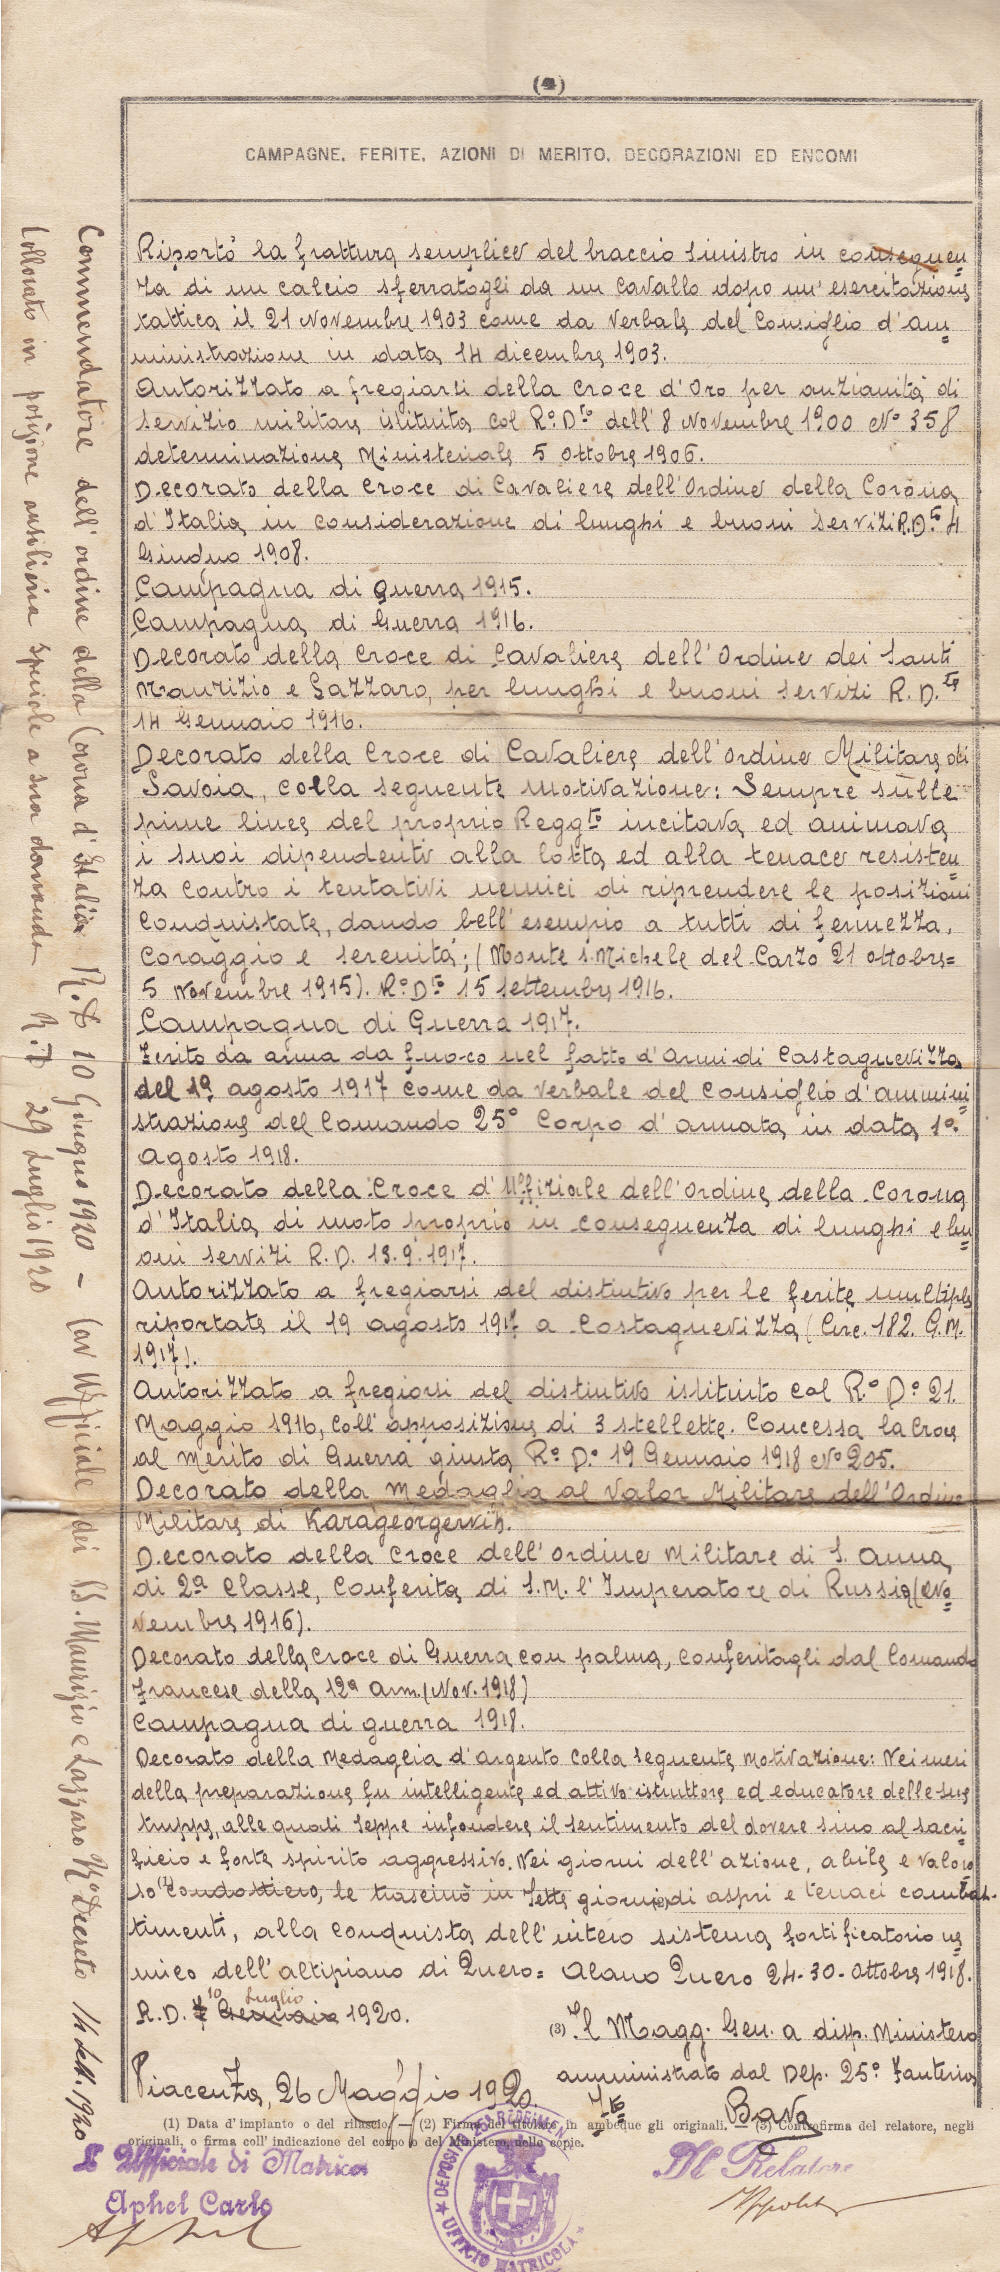 (4)
CAMPAGNE, FERITE, AZIONI DI MERITO, DECORAZIONI ED ENCOMI
Riportò la frattura semplice del braccio sinistro in conseguen
za di un calcio sferratogli da un cavallo dopo un' esercitazione
tattica il 21 Novembre 1903 come da Verbale del Consiglio d'am=
ministrazione in data 14 dicembre 1903.
Autorizzato a fregiarsi della Croce d'Oro per anzianità di
servizio militare istituita col R.o D.to dell' 8 Novembre 1900 No 358
determinazione Ministeriale 5 ottobre 1906.
Decorato della Croce di Cavaliere dell'Ordine della Corona
d'Italia in considerazione di lunghi e buoni servizi R.D.to 4
Giugno 1908.
Campagna di guerra 1915.
Campagna di Guerra 1916.
Decorato della Croce di Cavaliere dell'Ordine dei Santi
Maurizio e Lazzaro, per lunghi e buoni servizi R. D.to
14 Gennaio 1916.
Decorato della Croce di Cavaliere dell'Ordine Militare di
Savoia, colla seguente motivazione: Sempre sulle
prime linee del proprio Regg.to incitava ed animava
i suoi dipendenti alla lotta ed alla tenace resisten
za contro i tentativi nemici di riprendere le posizioni
conquistate, dando bell'esempio a tutti di fermezza,
coraggio e serenità; (Monte S. Michele del Carzo 21 ottobre=
5 Novembre 1915). R.o D.to 15 settembre 1916.
Campagna di Guerra 1917.
Ferito da arma da fuoco nel fatto d'armi di Castagnevizza
del 19 agosto 1917 come da verbale del Consiglio d'ammini
strazione del Comando 25o Corpo d'armata in data 1o.
agosto 1918.
Decorato della Croce d'Uffiziale dell'Ordine della Corona
d'Italia di moto proprio in conseguenza di lunghi e bu
oni servizi R. D. 13. 9. 1917.
Autorizzato a fregiarsi del distintivo per le ferite multiple
riportate il 19 agosto 1917 a Costagnevizza (Circ. 182. G.M.
1917).
Autorizzato a fregiarsi del distintivo istituito col R.o D.o 21.
Maggio 1916, coll'apposizione di 3 stellette. Concessa la Croce
al Merito di Guerra giusta R.o D.o 19 Gennaio 1918 No 205.
Decorato della Medaglia al Valor Militare dell'Ordine
Militare di Karageorgevich.
Decorato della Croce dell'Ordine Militare di S. Anna
di 2a Classe, Conferita di S.M. l'Imperatore di Russia (No
vembre 1916).
Decorato della Croce di Guerra con palma, conferitagli dal Comando
Francese della 12a Arm. (Nov. 1918)
Campagna di guerra 1918.
Decorato della Medaglia d'argento colla seguente motivazione: Nei mesi
della preparazione fu intelligente ed attivo istruttore ed educatore delle sue
truppe, alle quali seppe infondere il sentimento del dovere sino al sacri
ficio e forte spirito aggressivo. Nei giorni dell'azione, abile e valoro
so condottiero, le trascinò in sette giorni di aspri e tenaci combat-
timenti, alla conquista dell'intero sistema fortificatorio ne
mico dell'altipiano di Quero = Alano Quero 24-30-Ottobre 1918.
R.D. 10 Luglio Gennaio 1920.
(3) Il Magg. Gen. a disp. Ministero
amministrato dal Dep. 25o Fanteria
Piacenza, 26 Maggio 1920.
Fto Bava
(1) Data d'impianto o del rilascio. — (2) Firma del titolare, in ambeque gli originali. — (3) Controfirma del relatore, negli
originali, o firma coll' indicazione del corpo o del Ministero, nelle copie.
L'Ufficiale di Matricola
Aphel Carlo
Aphel
DEPOSITO 25o REGGIMEN
UFFICIO MATRICOLA
Il Relatore
Commendatore dell'ordine della Corona d'Italia R. D 10 Giugno 1920 - Cav Ufficiale dei SS. Maurizio e Lazzaro Ro Decreto 14 sett. 1920
Collocato in posizione ausiliaria speciale a sua domanda R. D 29 Luglio 1920